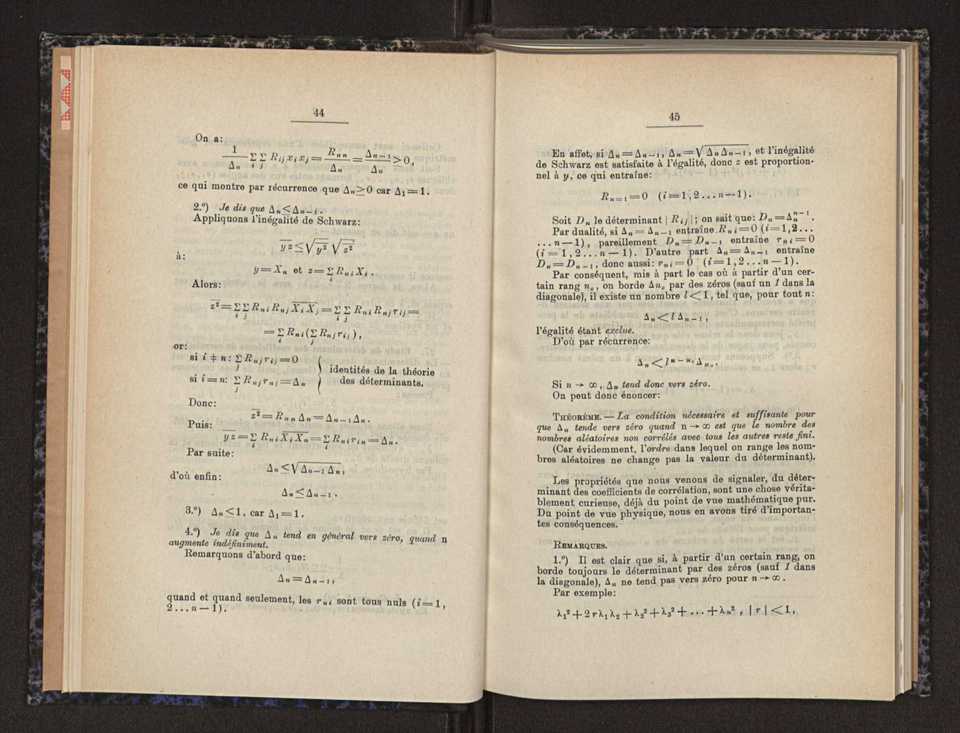 44
On a:
1/Δn Σi Σj Rij xi xj = Rnn/Δn = Δn−1/Δn > 0,
ce qui montre par récurrence que Δn ≥ 0 car Δ1 = 1.
2.º) Je dis que Δn ≤ Δn−1.
Appliquons l'inégalité de Schwarz:
y̅z̅ ≤ √y̅²̅ √z̅²̅
à:
y = Xn et z = Σi Rni Xi .
Alors:
z̅²̅ = Σi Σj Rni Rnj X̅i̅X̅j̅ = Σi Σj Rni Rnj rij =
= Σi Rni (Σj Rnj rij ),
or:
si i ≠ n: Σj Rnj rij = 0
identités de la théorie
si i = n: Σj Rnj rnj = Δn
des déterminants.
Donc:
z̅²̅ = Rnn Δn = Δn−1 Δn.
Puis:
y̅z̅ = Σi Rni X̅i̅X̅n̅ = Σi Rni rin = Δn.
Par suite:
Δn ≤ √Δn−1 Δn,
d'où enfin:
Δn ≤ Δn−1 .
3.º) Δn < 1, car Δ1 = 1.
4.º) Je dis que Δn tend en général vers zéro, quand n
augmente indéfiniment.
Remarquons d'abord que:
Δn = Δn−1,
quand et quand seulement, les rni sont tous nuls (i = 1,
2 ... n − 1).
45
En affet, si Δn = Δn−1, Δn = √Δn Δn−1, et l'inégalité
de Schwarz est satisfaite à l'égalité, donc z est proportion-
nel à y, ce qui entraîne:
Rn=1 = 0 (i = 1, 2 ... n − 1).
Soit Dn le déterminant | Rij |; on sait que: Dn = Δn^n−1 .
Par dualité, si Δn = Δn−1 entraîne Rni = 0 (i = 1, 2 ...
... n − 1), pareillement Dn = Dn−1 entraîne rni = 0
(i = 1, 2 ... n − 1). D'autre part Δn = Δn−1 entraîne
Dn = Dn−1, donc aussi: rni = 0 (i = 1, 2 ... n − 1).
Par conséquent, mis à part le cas où à partir d'un cer-
tain rang no, on borde Δno par des zéros (sauf un 1 dans la
diagonale), il existe un nombre l < 1, tel que, pour tout n:
Δn < l Δn−1,
l'égalité étant exclue.
D'où par récurrence:
Δn < l^n−no Δno.
Si n → ∞, Δn tend donc vers zéro.
On peut donc énoncer:
Théorème. — La condition nécessaire et suffisante pour
que Δn tende vers zéro quand n → ∞ est que le nombre des
nombres aléatoires non corrélés avec tous les autres reste fini.
(Car évidemment, l'ordre dans lequel on range les nom-
bres aléatoires ne change pas la valeur du déterminant).
Les propriétés que nous venons de signaler, du déter-
minant des coefficients de corrélation, sont une chose vérita-
blement curieuse, déjà du point de vue mathématique pur.
Du point de vue physique, nous en avons tiré d'importan-
tes conséquences.
Remarques.
1.º) Il est clair que si, à partir d'un certain rang, on
borde toujours le déterminant par des zéros (sauf 1 dans
la diagonale), Δn ne tend pas vers zéro pour n → ∞ .
Par exemple:
λ1² + 2 r λ1 λ2 + λ2² + λ3² + ... + λn² , | r | < 1,